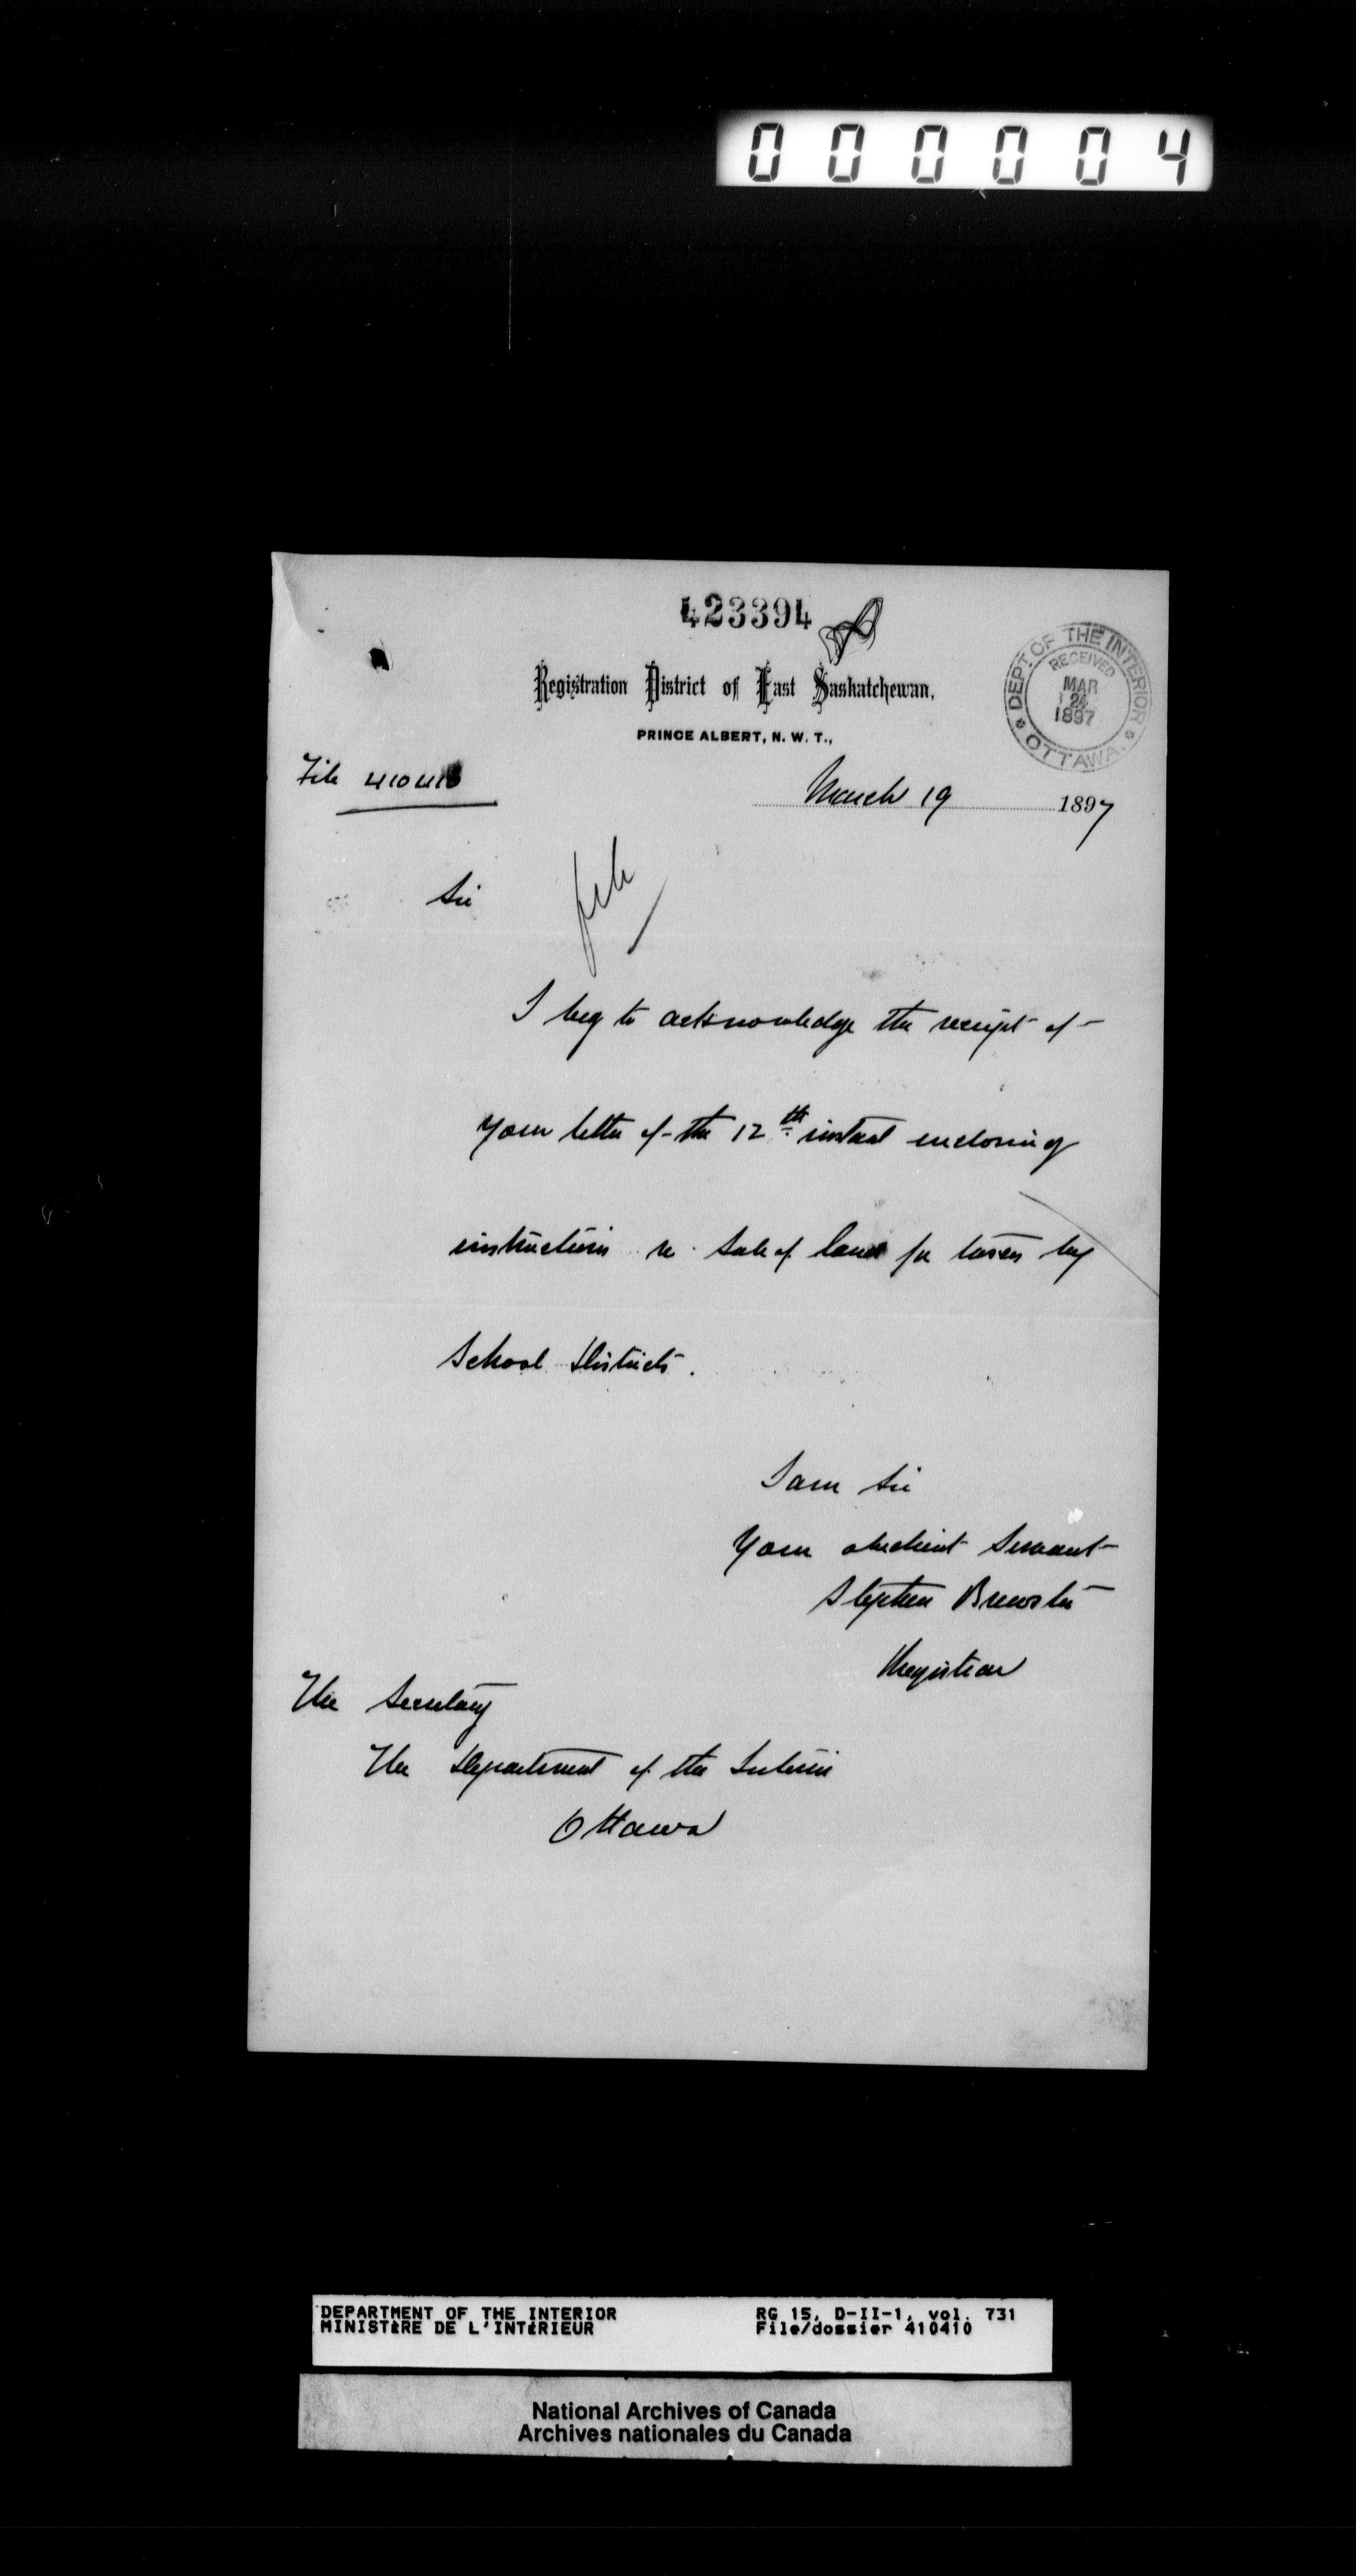 000004
423394
Registration District of East Saskatchewan,
PRINCE ALBERT, N. W. T.,
DEPT. OF THE INTERIOR
RECEIVED
MAR
24
1897
OTTAWA.
File 410410
March 19 1897
Sir
file
I beg to acknowledge the receipt of
your letter of the 12th instant enclosing
instructions re sale of land for taxes by
School Districts.
I am Sir
Your obedient Servant
Stephen Brewster
Registrar
The Secretary
The Department of the Interior
Ottawa
DEPARTMENT OF THE INTERIOR
MINISTÈRE DE L'INTÉRIEUR
RG 15, D-II-1, vol. 731
File/dossier 410410
National Archives of Canada
Archives nationales du Canada